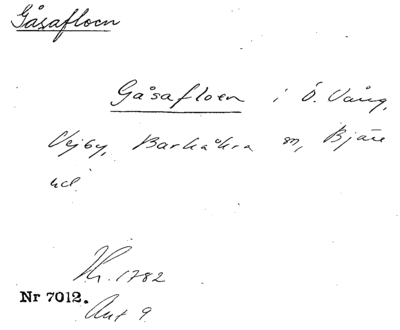 Gåsafloen
Gåsafloen i Ö. Vång,
Vejby, Barkåkra sn, Bjäre
hd.
Hr. 1782
Nr 7012.
Akt 9